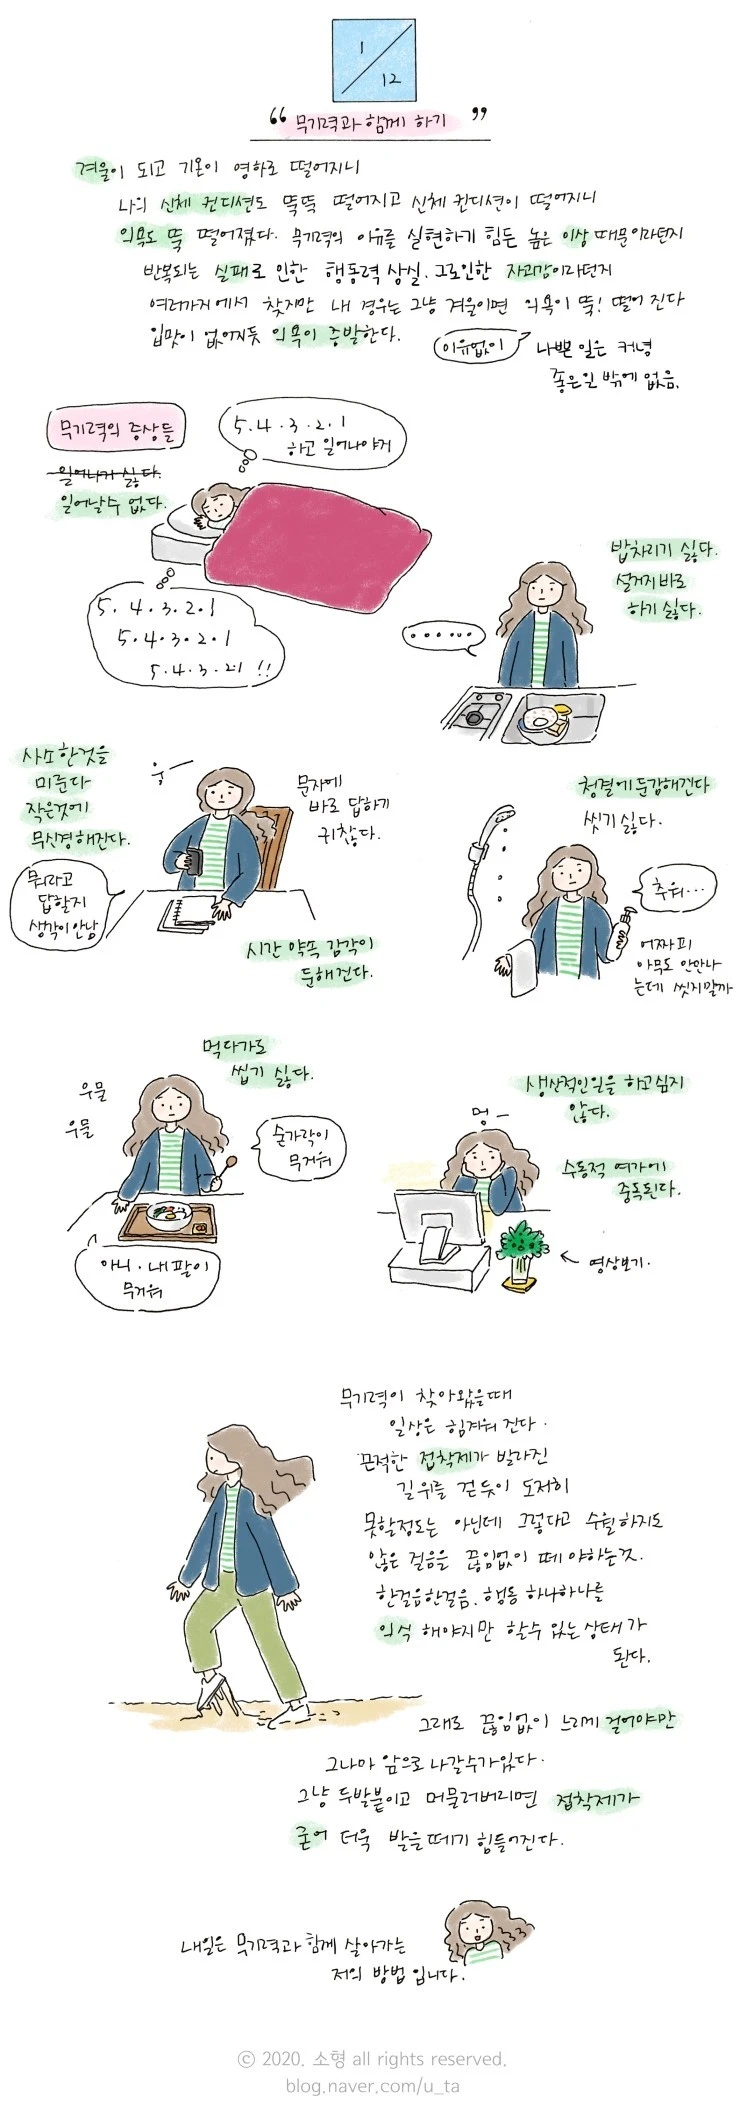 1
12
“ 무기력과 함께 하기 ”
겨울이 되고 기온이 영하로 떨어지니
나의 신체 컨디션도 뚝뚝 떨어지고 신체 컨디션이 떨어지니
의욕도 뚝 떨어졌다. 무기력의 이유를 실현하기 힘든 높은 이상 때문이라던지
반복되는 실패로 인한 행동력 상실. 그로인한 자괴감이라던지
여러가지에서 찾지만 내 경우는 그냥 겨울이면 의욕이 뚝! 떨어 진다
입맛이 없어지듯 의욕이 증발한다.
이유없이
나쁜 일은 커녕
좋은일 밖에 없음.
무기력의 증상들
일어나기 싫다.
일어날수 없다.
5. 4. 3. 2. 1
하고 일어나야지
5. 4. 3. 2. 1
5. 4. 3. 2. 1
5. 4. 3. 21 !!
밥차리기 싫다.
설거지 바로
하기 싫다.
......
사소한것을
미룬다
작은것에
무신경해진다.
뭐라고
답할지
생각이 안남
웅ㅡ
문자에
바로 답하기
귀찮다.
시간 약속 감각이
둔해진다.
청결에 둔감해진다
씻기 싫다.
추워...
어짜피
아무도 안만나
는데 씻지말까
먹다가도
씹기 싫다.
우물
우물
숟가락이
무거워
아니. 내 팔이
무거워
생산적인일을 하고싶지
않다.
멍ㅡ
수동적 여가에
중독된다.
← 영상보기.
무기력이 찾아왔을때
일상은 힘겨워 진다.
끈적한 접착제가 발라진
길 위를 걷듯이 도저히
못할정도는 아닌데 그렇다고 수월하지도
않은 걸음을 끊임없이 떼야하는것.
한걸음한걸음. 행동 하나하나를
의식 해야지만 할수 있는 상태가
된다.
그래도 끊임없이 느리게 걸어야만
그나마 앞으로 나갈수가있다.
그냥 두발붙이고 머물러버리면 접착제가
굳어 더욱 발을 떼기 힘들어진다.
내일은 무기력과 함께 살아가는
저의 방법 입니다.
© 2020. 소형 all rights reserved.
blog.naver.com/u_ta